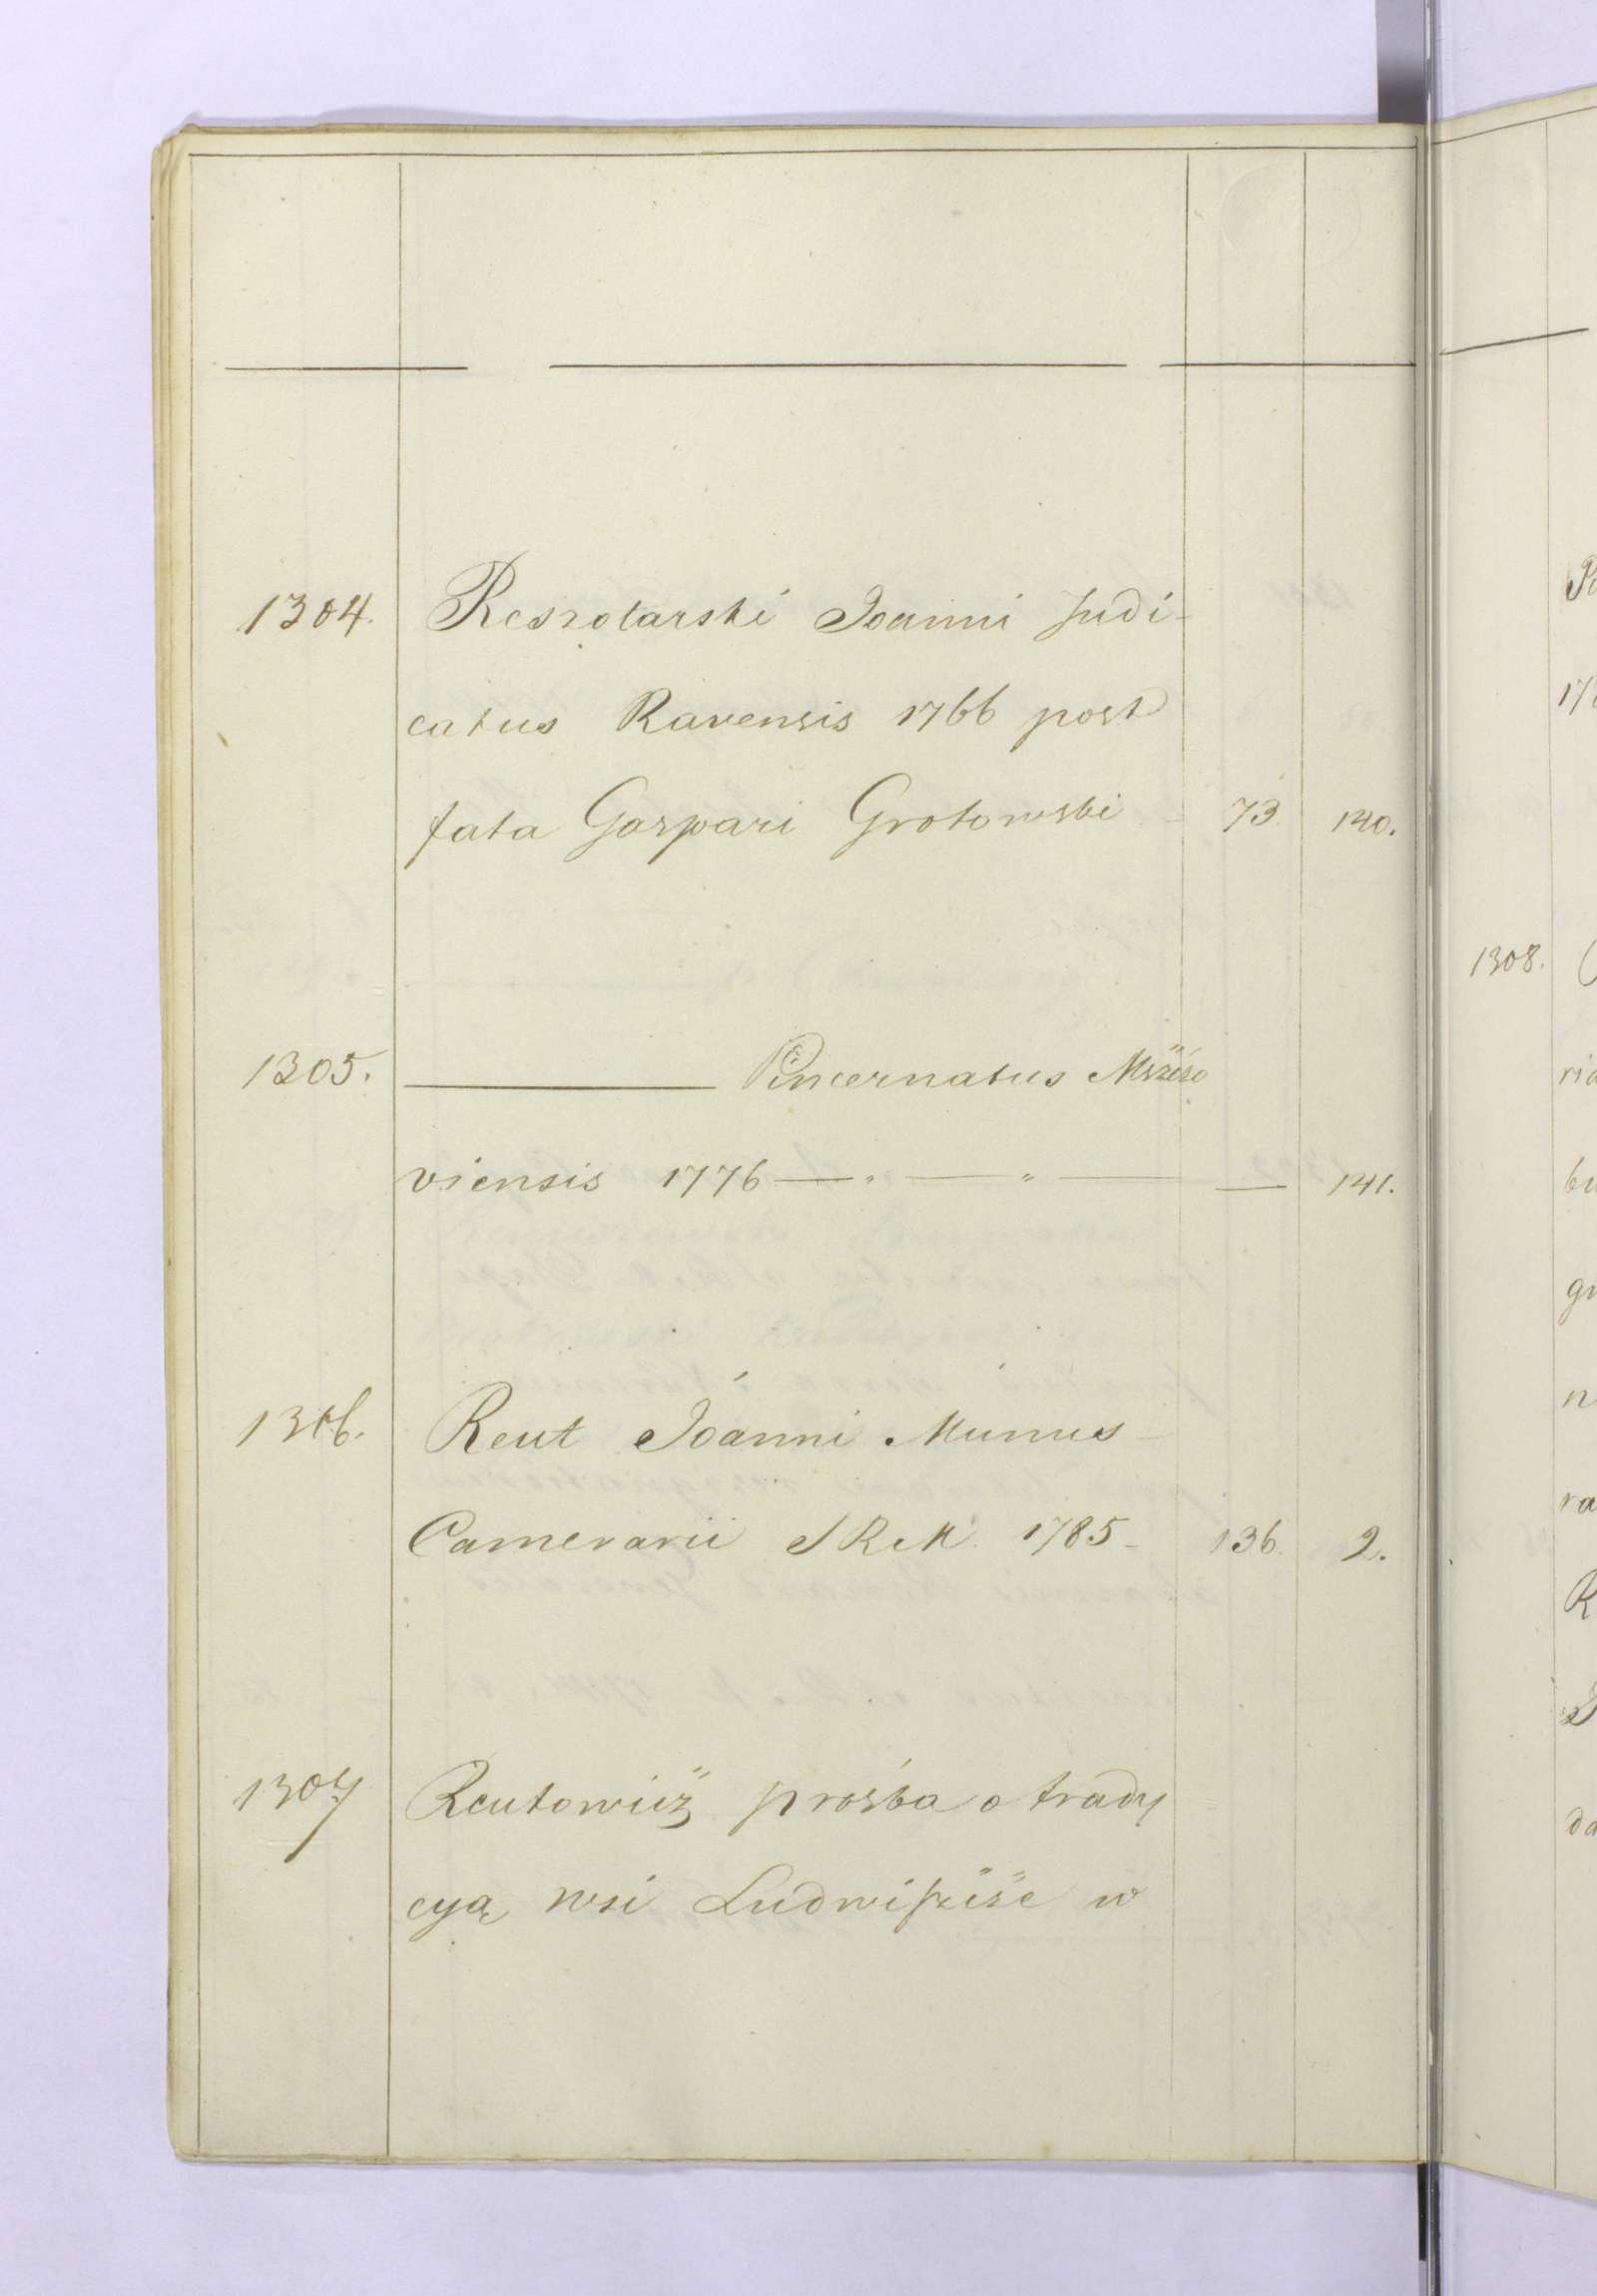 1304. Reszotarski Joanni Judi-
catus Ravensis 1766 post
fata Gaspari Grotowski 73. 140.
1305. ——— Pincernatus
viensis 1776 —„—„— — 141.
1306. Reut Joanni Munus
Camerarii SRM. 1785 - 136. 2.
1307 Reutowicz prośba o trady
cyą wsi w
1308.